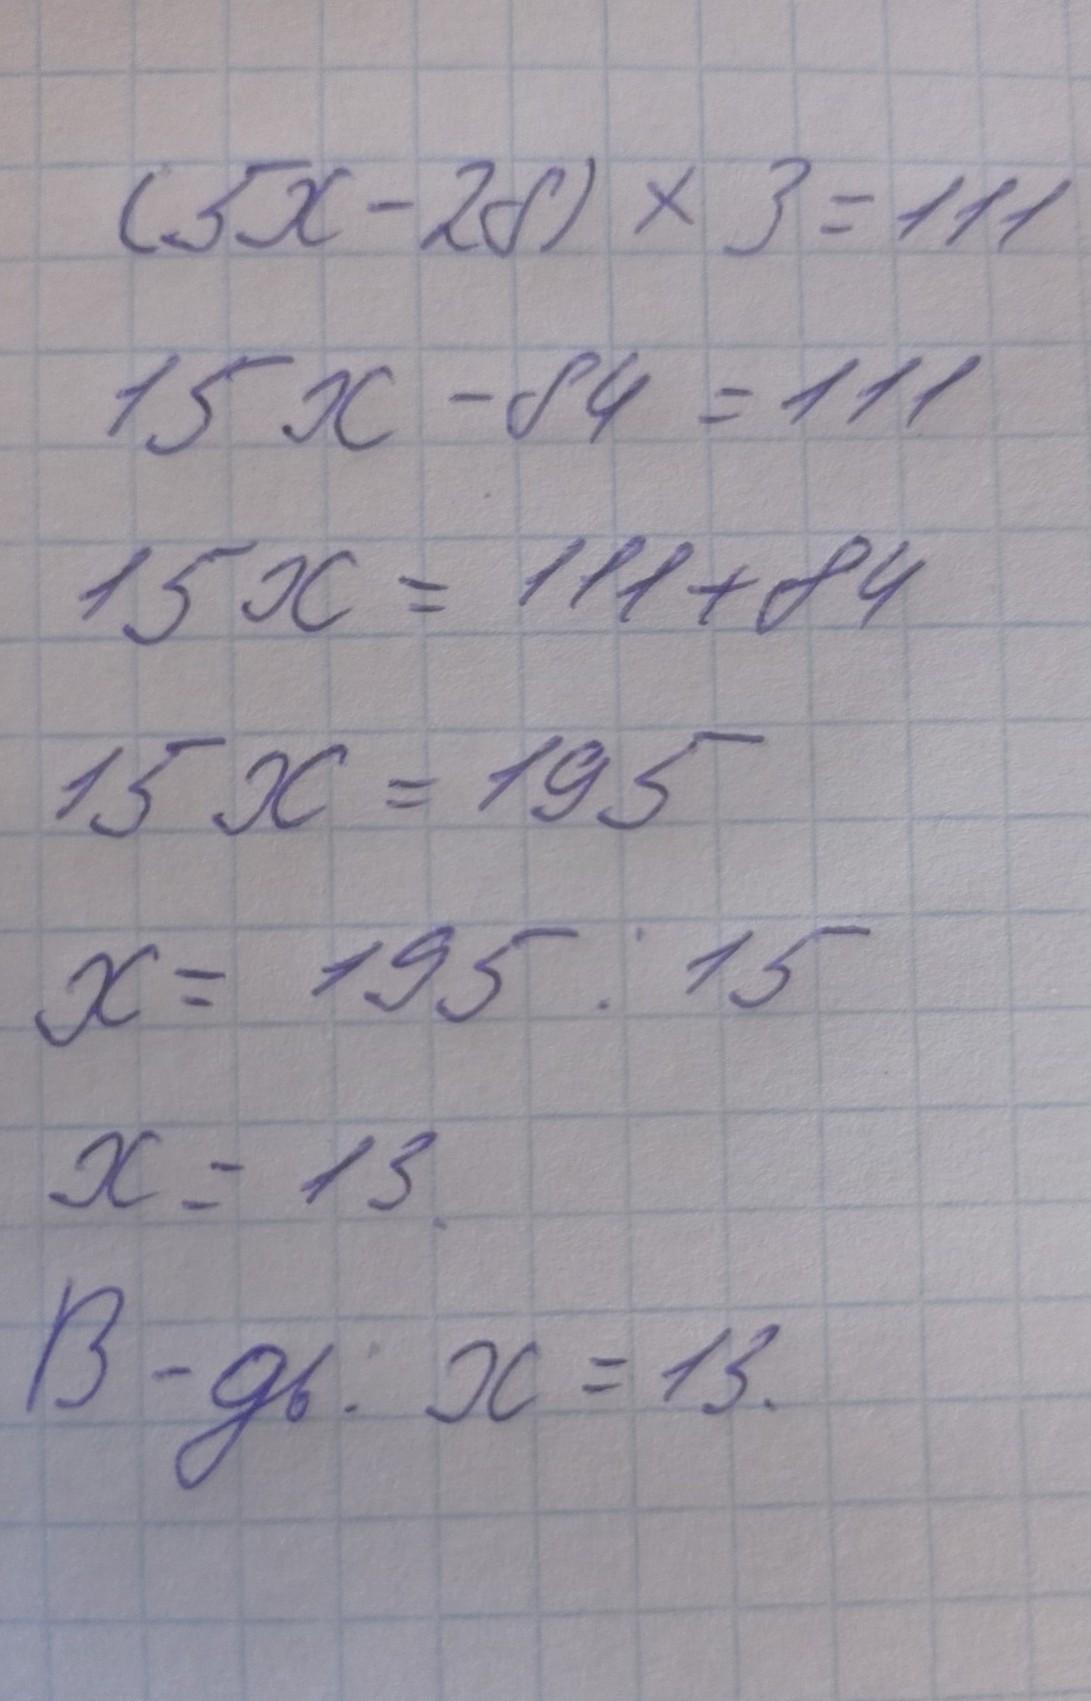 (5x - 28) × 3 = 111
15x - 84 = 111
15x = 111 + 84
15x = 195
x = 195 : 15
x = 13.
В-дь: x = 13.